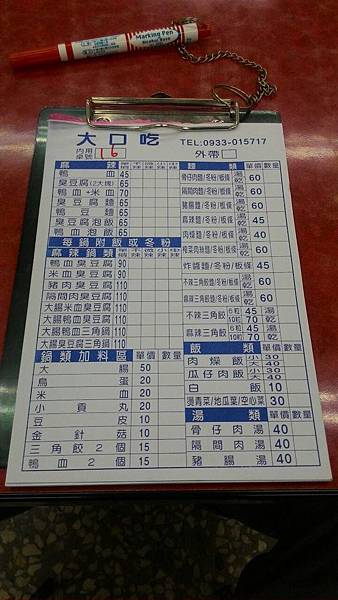 Marking Pen
大口吃
TEL:0933-015717
內用 桌號 16
外帶
麻辣 單價
鴨血 45
臭豆腐(2大塊) 45
鴨血+米血 70
臭豆腐麵
鴨豆麵
臭豆腐泡飯
鴨血泡飯
每鍋附飯或冬粉
麻辣鍋類 單價
鴨血臭豆腐 90
米血臭豆腐 90
豬肉臭豆腐 110
隔間肉臭豆腐 110
大腸米血臭豆腐 110
大腸鴨血臭豆腐 110
大腸鴨血三角鍋 110
大腸臭豆腐三角鍋 110
鍋類加料區 單價 數量
大腸 50
鳥蛋 20
米血 20
小貢丸 20
豆皮 10
金針菇 10
三角餃2個 15
鴨血2個 15
麵類 單價 數量
骨仔肉麵/冬粉/板條 湯 乾 60
隔間肉麵/冬粉/板條 湯 乾 60
豬腸麵/冬粉/板條 湯 乾 60
麻辣麵/冬粉/板條 湯 乾 45
肉燥麵/冬粉/板條 湯 乾 40
榨菜肉絲麵/冬粉/板條 湯 乾 60
炸醬麵/冬粉/板條 45
不辣三角餃麵/冬粉/板條 湯 乾 60
麻辣三角餃麵/冬粉/板條 湯 乾 60
不辣三角餃 6粒 45 10粒 70 湯 乾
麻辣三角餃 6粒 45 10粒 70 湯 乾
飯類 單價 數量
肉燥飯 小 30 大 40
瓜仔肉飯 小 30 大 40
白飯 10
燙青菜/地瓜葉/空心菜 30
湯類 單價 數量
骨仔肉湯 40
隔間肉湯 40
豬腸湯 40